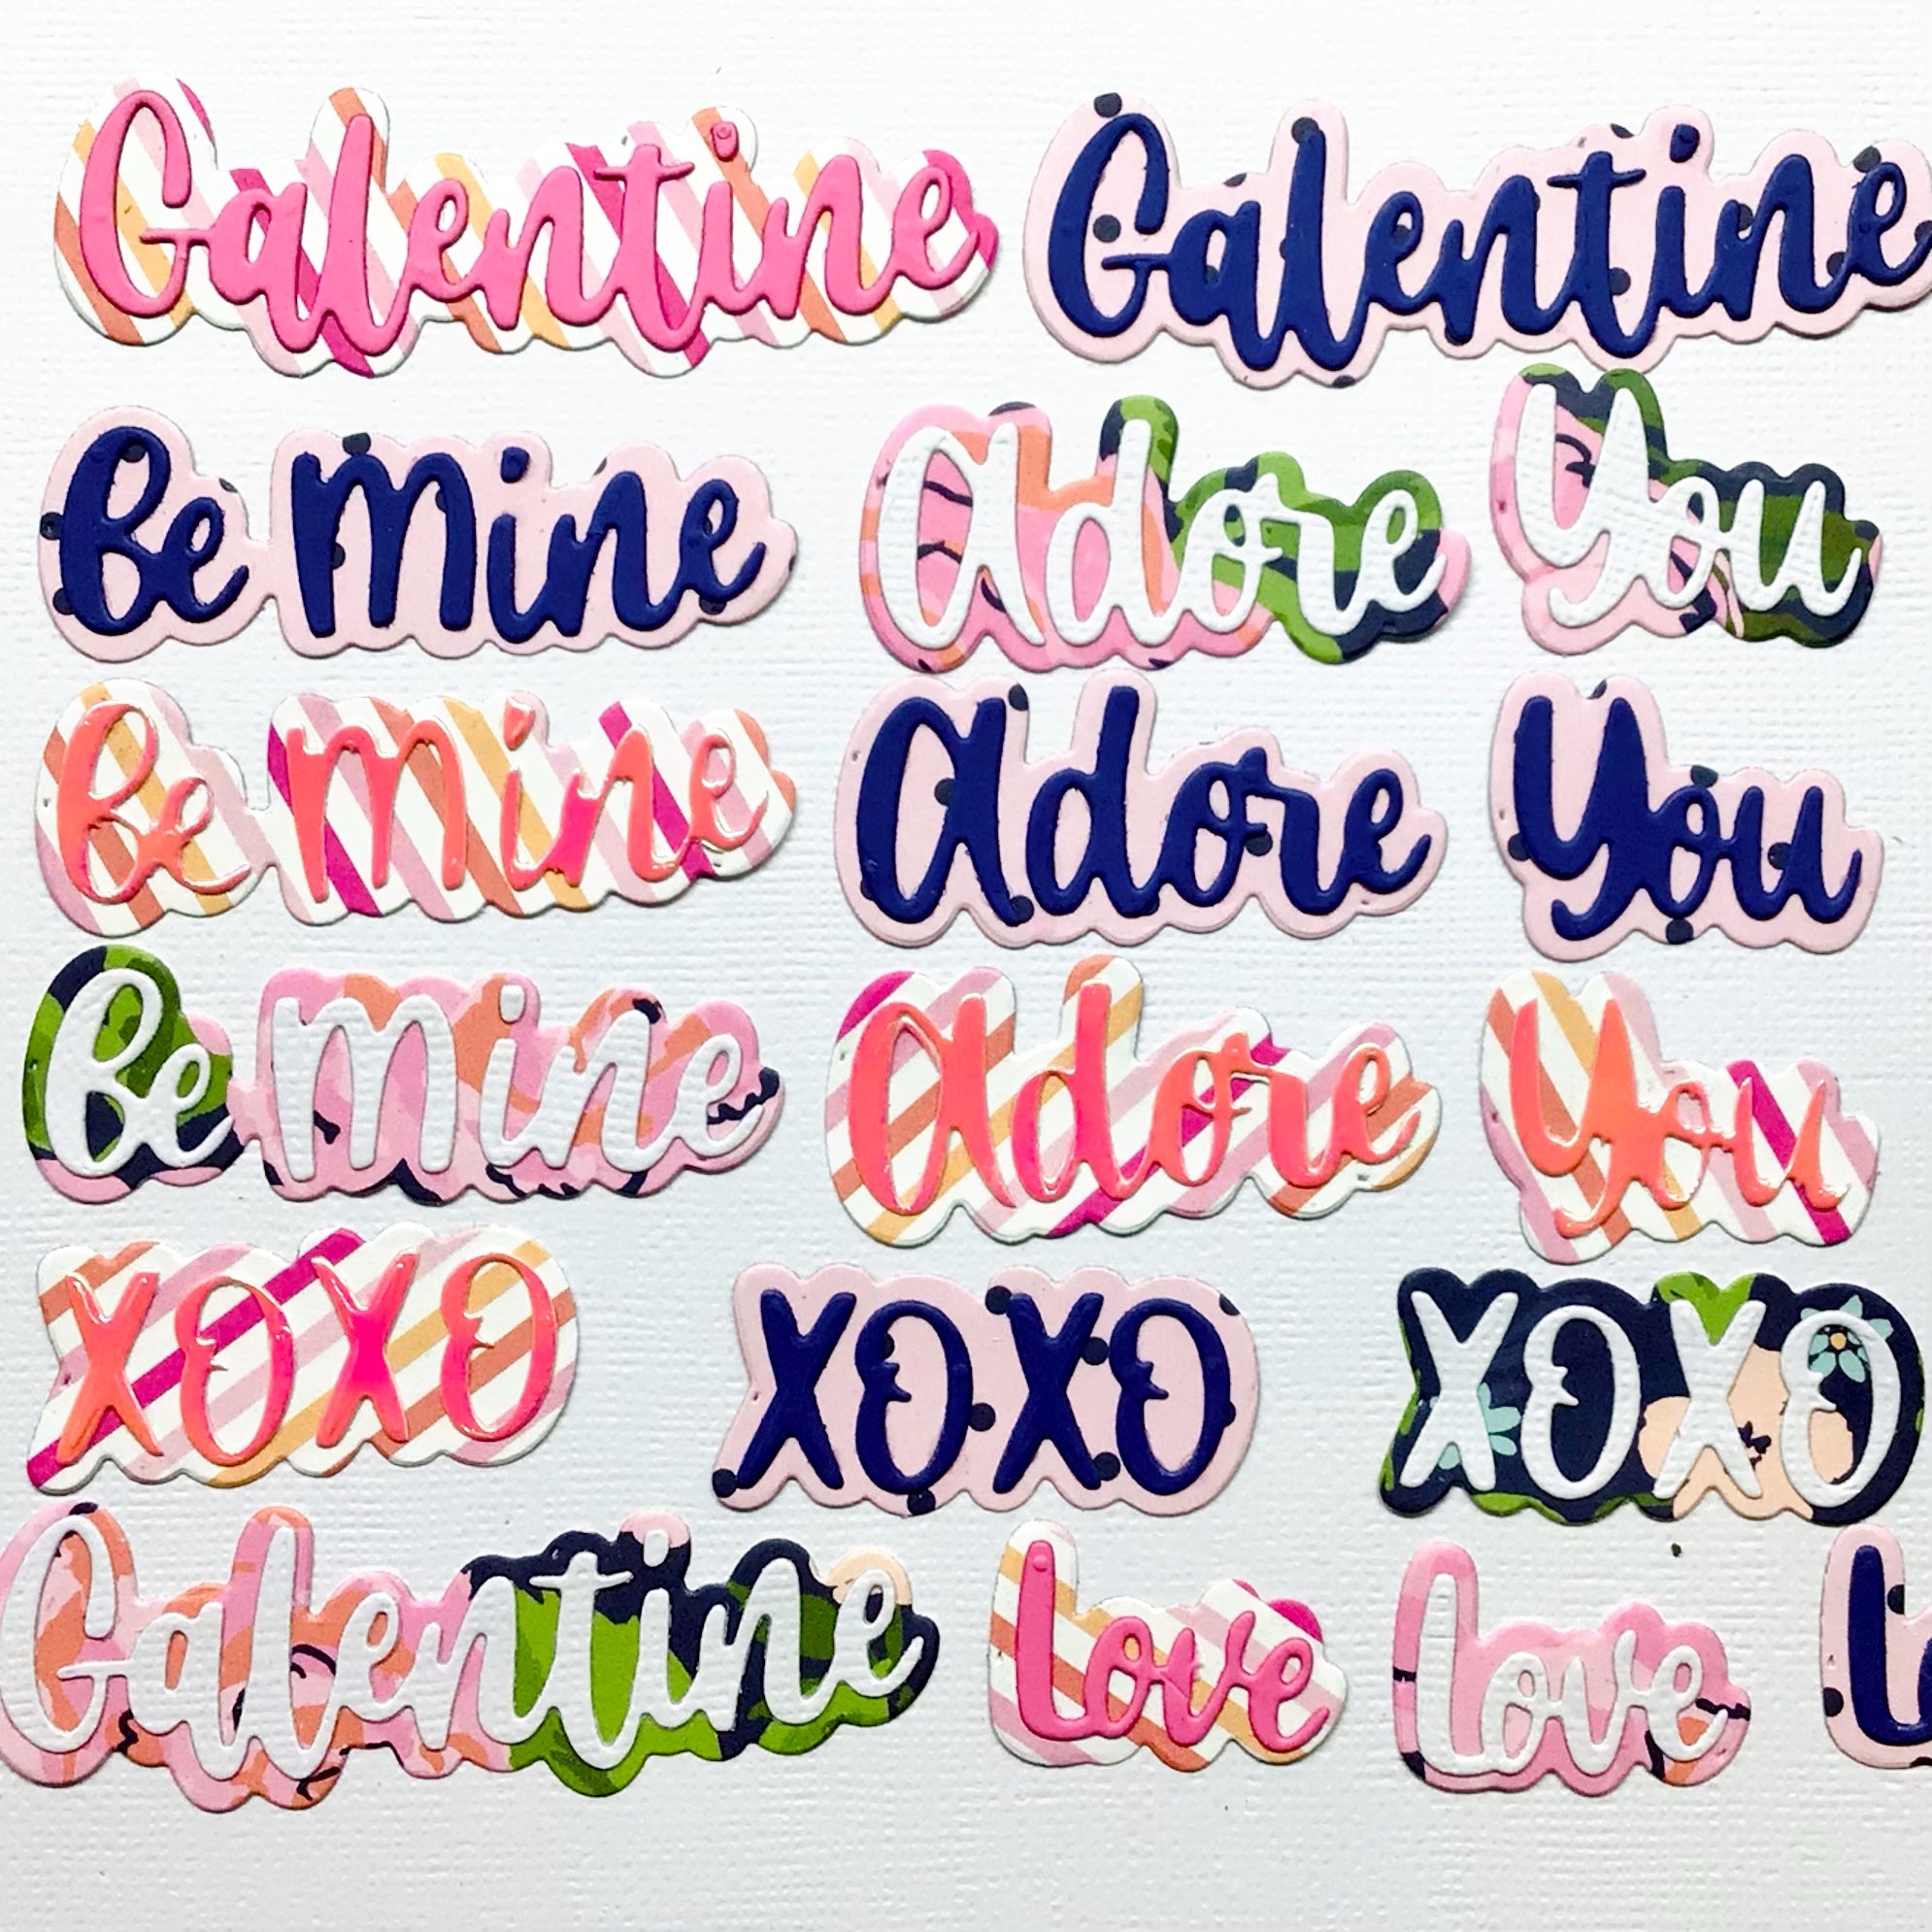 Galentine Galentine
Be Mine Adore You
Be Mine Adore You
Be Mine Adore You
XOXO XOXO XOXO
Galentine Love Love